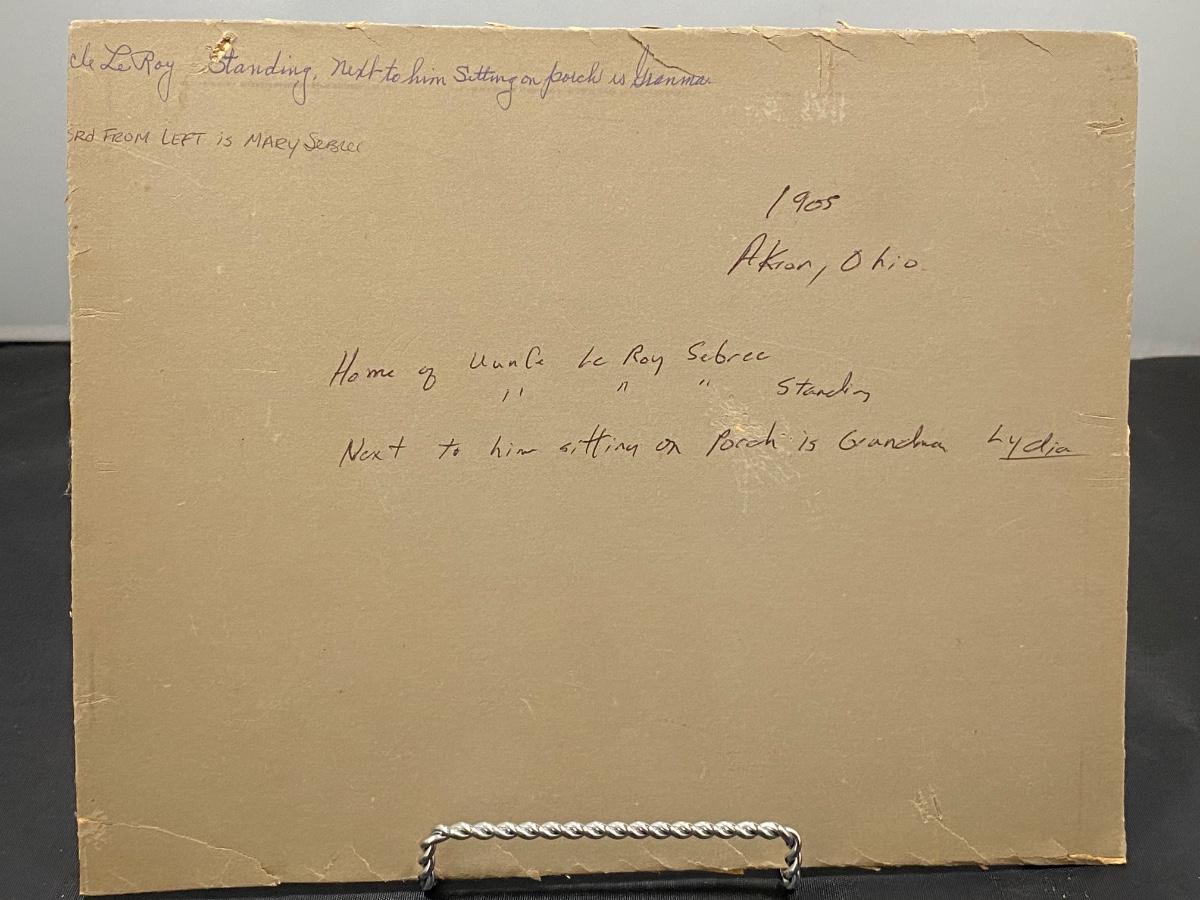 cle LeRoy Standing, Next to him Sitting on porch is Granma.
3Rd FROM LEFT is MARY Sebree
1905
Akron, Ohio
Home of Uuncle Le Roy Sebree
" " " Standing
Next to him sitting on Porch is Grandma Lydia